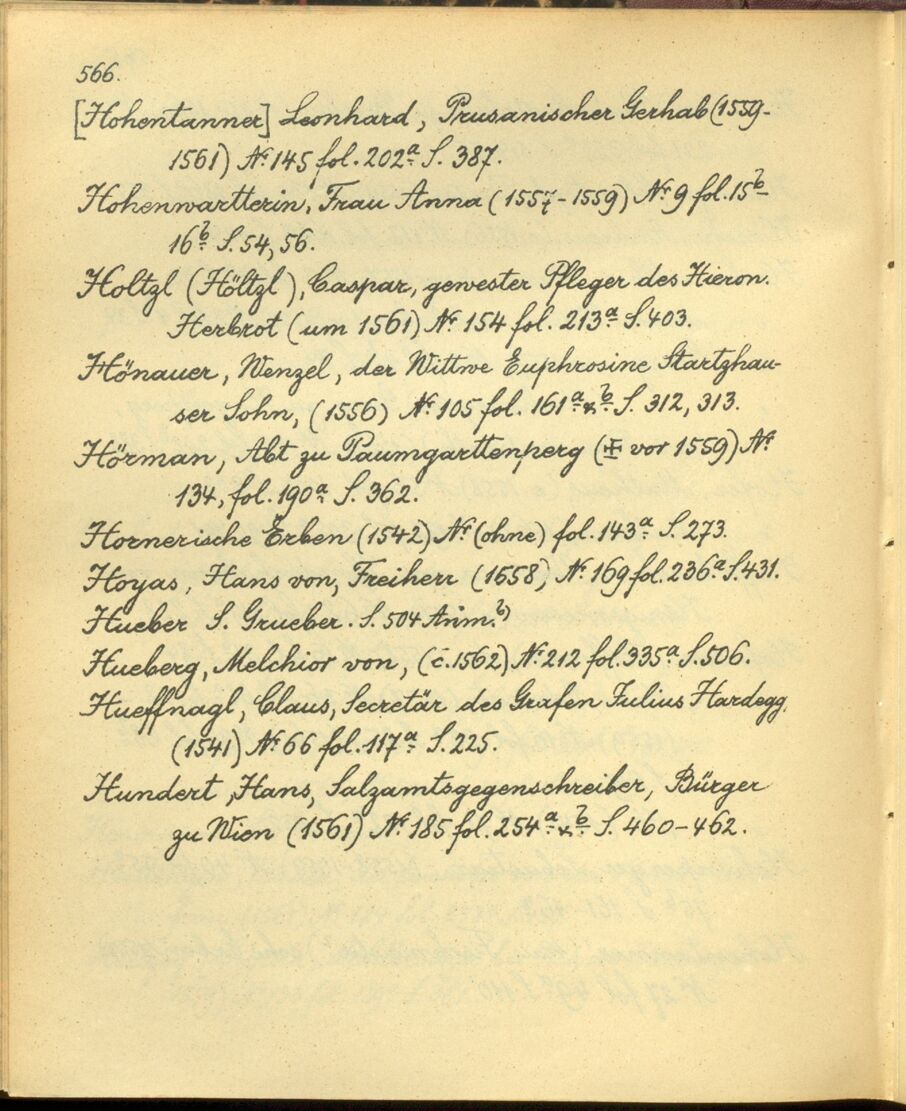 566.
[Hohentanner] Leonhard, Prusanischer Gerhab (1559-
1561) Nr. 145 fol. 202a S. 387.
Hohenwartterin, Frau Anna (1557-1559) Nr. 9 fol. 15b-
16b S. 54, 56.
Holtzl (Höltzl), Caspar, gewester Pfleger des Hieron.
Herbrot (um 1561) Nr. 154 fol. 213a S. 403.
Hönauer, Wenzel, der Wittwe Euphrosine Startzhau-
ser Sohn, (1556) Nr. 105 fol. 161a & b S. 312, 313.
Hörman, Abt zu Paumgarttenperg (✠ vor 1559) Nr.
134, fol. 190a S. 362.
Hornerische Erben (1542) Nr. (ohne) fol. 143a S. 273.
Hoyas, Hans von, Freiherr (1558) Nr. 169 fol. 236a S. 431.
Hueber S. Grueber. S. 504 Anm. b)
Hueberg, Melchior von, (c. 1562) Nr. 212 fol. 335a S. 506.
Hueffnagl, Claus, Secretär des Grafen Julius Hardegg
(1541) Nr. 66 fol. 117a S. 225.
Hundert, Hans, Salzamtsgegenschreiber, Bürger
zu Wien (1561) Nr. 185 fol. 254a & b S. 460-462.